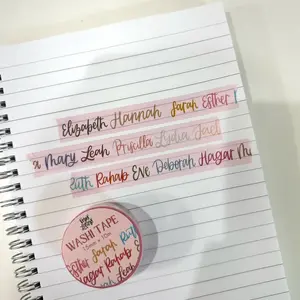 Elizabeth Hannah Sarah Esther
a Mary Leah Priscilla Lydia Jael
Ruth Rahab Eve Deborah Hagar Mi
WASHI TAPE
15mm x 10m
Esther Sarah Rut
Hagar Rahab E
Leah